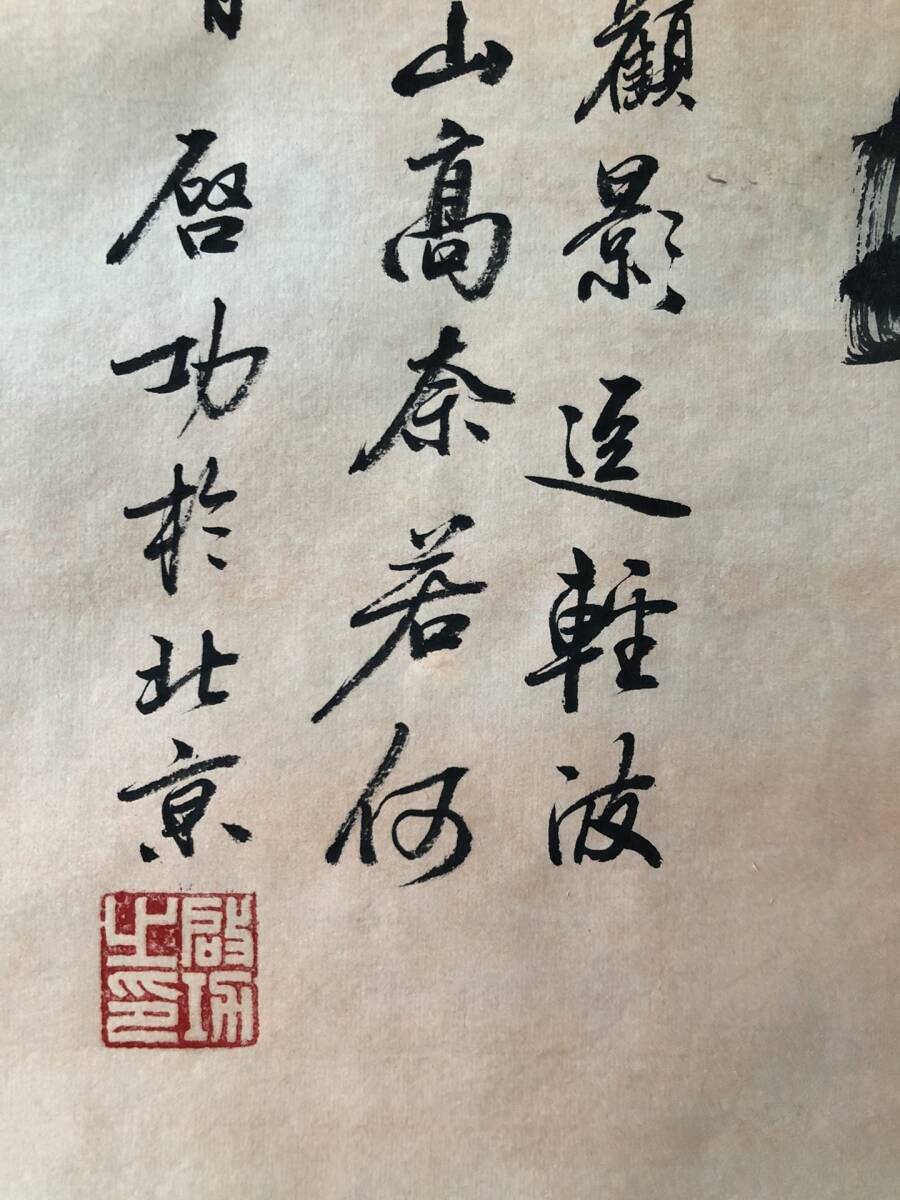 顧影逗輕波
山高奈若何
啟功於北京
啟功之印